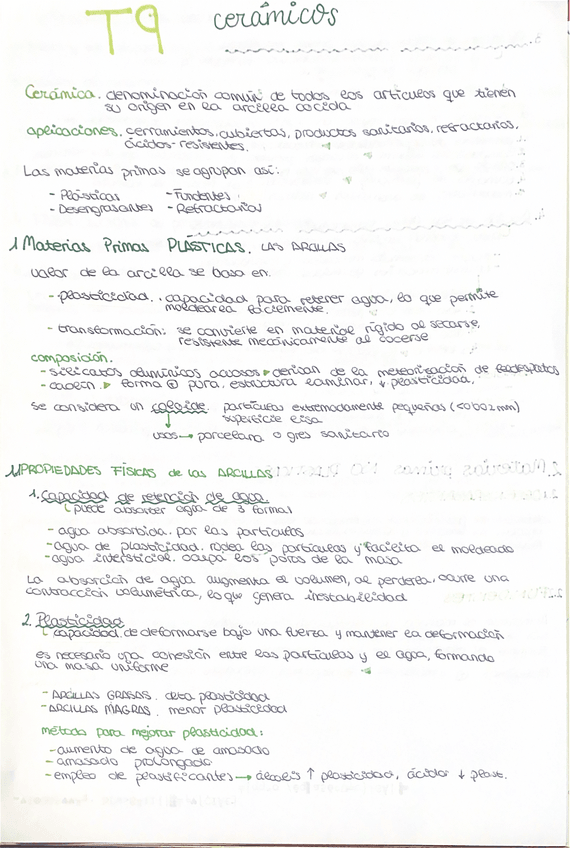 T9 cerámicos
Cerámica. denominación común de todos los artículos que tienen
su origen en la arcilla cocida
aplicaciones. cerramientos, cubiertas, productos sanitarios, refractarios,
ácidos-resistentes.
Las materias primas se agrupan así:
- Plásticas - Fundentes
- Desengrasantes - Refractarias
1 Materias Primas PLÁSTICAS. LAS ARCILLAS
valor de la arcilla se basa en:
- plasticidad. capacidad para retener agua, lo que permite
moldearla fácilmente.
- transformación: se convierte en material rígido al secarse,
resistente mecánicamente al cocerse
composición.
- silicatos alumínicos acuosos derivan de la meteorización de feldespatos
- caolín. forma + pura, estructura laminar, ↓ plasticidad.
se considera un coloide. partículas extremadamente pequeñas (<0'002mm)
superficie lisa
usos → porcelana o gres sanitario
1.1 PROPIEDADES FÍSICAS de las ARCILLAS
1. Capacidad de retención de agua.
puede absorber agua de 3 formas
- agua absorbida. por las partículas
- agua de plasticidad. rodea las partículas y facilita el moldeado
- agua intersticial. ocupa los poros de la masa
La absorción de agua augmenta el volumen, al perderla, ocurre una
contracción volumétrica, lo que genera inestabilidad
2. Plasticidad
capacidad de deformarse bajo una fuerza y mantener la deformación
es necesario una cohesión entre las partículas y el agua, formando
una masa uniforme
- ARCILLAS GRASAS. alta plasticidad
- ARCILLAS MAGRAS. menor plasticidad
método para mejorar plasticidad:
- aumento de agua de amasado
- amasado prolongado
- empleo de plastificantes → álcalis ↑ plasticidad, ácidos ↓ plast.